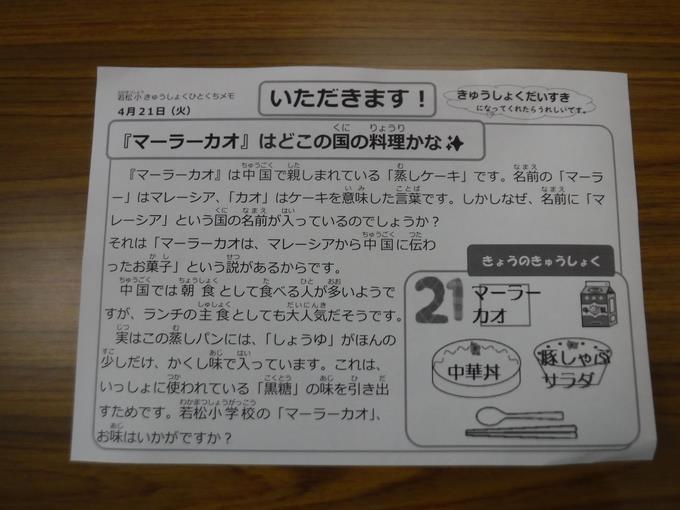 若松小きゅうしょくひとくちメモ
4月21日（火）
いただきます！
きゅうしょくだいすき
になってくれたらうれしいです。
『マーラーカオ』はどこの国の料理かな
『マーラーカオ』は中国で親しまれている「蒸しケーキ」です。名前の「マーラ
ー」はマレーシア、「カオ」はケーキを意味した言葉です。しかしなぜ、名前に「マ
レーシア」という国の名前が入っているのでしょうか？
それは「マーラーカオは、マレーシアから中国に伝わ
ったお菓子」という説があるからです。
中国では朝食として食べる人が多いようで
すが、ランチの主食としても大人気だそうです。
実はこの蒸しパンには、「しょうゆ」がほんの
少しだけ、かくし味で入っています。これは、
いっしょに使われている「黒糖」の味を引き出
すためです。若松小学校の「マーラーカオ」、
お味はいかがですか？
きょうのきゅうしょく
21
マーラー
カオ
中華丼
豚しゃぶ
サラダ